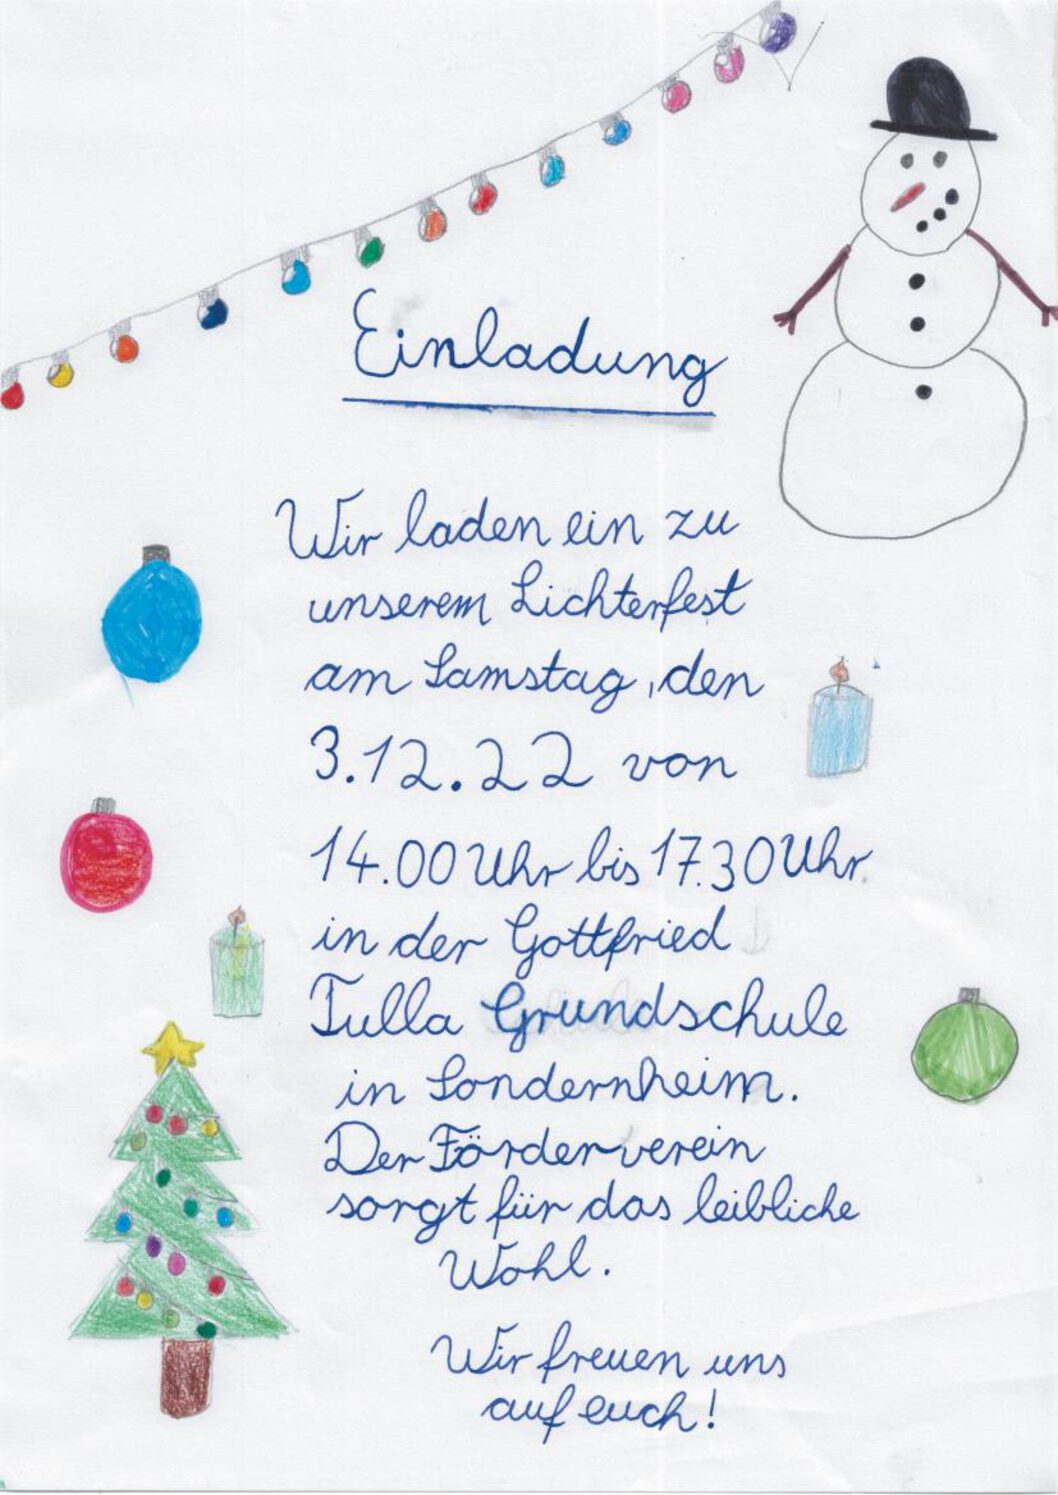 Einladung
Wir laden ein zu
unserem Lichterfest
am Samstag, den
3.12.22 von
14.00 Uhr bis 17.30 Uhr
in der Gottfried
Tulla Grundschule
in Sondernheim.
Der Förderverein
sorgt für das leibliche
Wohl.
Wir freuen uns
auf euch!